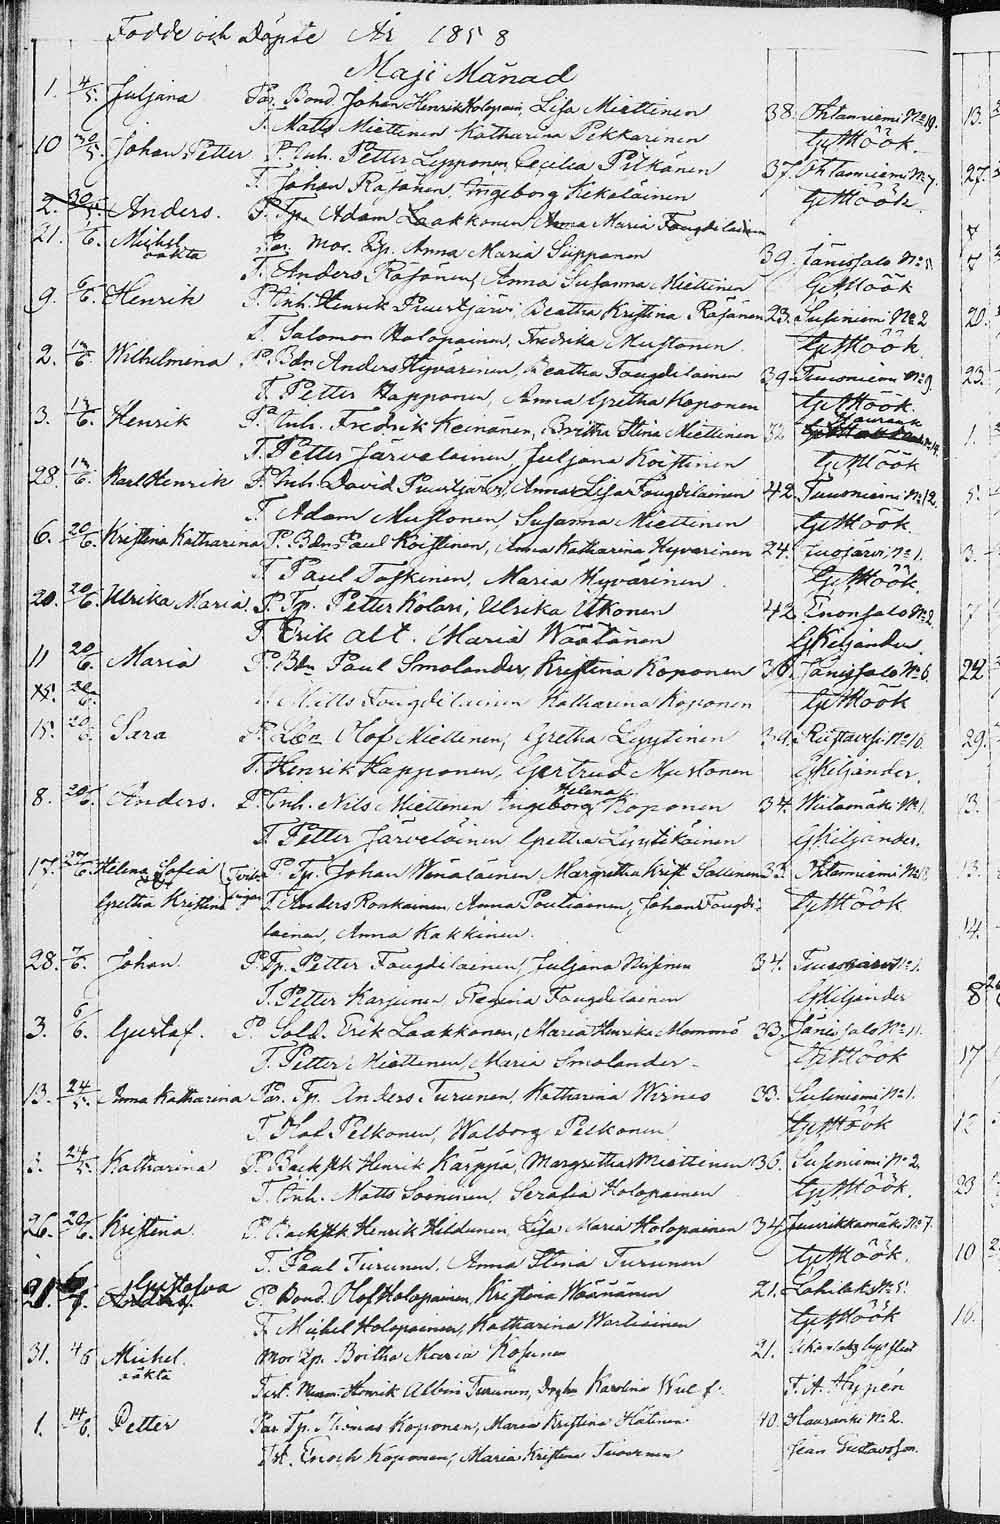 Födde och Döpte År 1858
Maji Månad
1. 4/5. Juljana Par. Bond. Johan Henrik Holopain, Lisa Miettinen 38. Ohtaniemi No 19.
T. Matts Miettinen Katharina Pekkarinen GMöök.
10 30/5. Johan Petter P. Inh. Petter Lipponen, Cecilia Pitkänen 37. Ohtaniemi No 7.
T. Johan Räsänen, Ingeborg Kekäläinen GMöök.
2. 30/5. Anders. P. Tp. Adam Laakkonen Anna Maria Fougdilainen
21. /6. Michel Par. Mor. Tp. Anna Maria Sipponen 39. Jänissalo No
oäkta T. Anders Räsänen, Anna Susanna Miettinen GMöök
9. 6/6. Henrik P. Inh. Henrik Puurtjärvi, Beatha Kristina Räsänen 23. Susiniemi No 2
T. Salomon Holopainen, Fredrika Mustonen GMöök
2. 13/6. Wilhelmina P. Bdn Anders Hyvärinen, Beatha Fougdilainen 39. Tuusniemi No 9.
T. Petter Happonen, Anna Gretha Koponen GMöök.
3. 13/6. Henrik P. Inh. Fredrik Keinänen, Britha Stina Miettinen 32. Hauranki No 14.
T. Petter Järvelainen, Juljana Koistinen GMöök
28. 13/6. Karl Henrik P. Inh. David Puurtjärvi, Anna Lisa Fougdilainen 42. Tuusniemi No 12.
T. Adam Mustonen, Susanna Miettinen GMöök.
6. 20/6. Kristina Katharina P. Bdn Paul Koistinen, Anna Katharina Hyvärinen 24. Juojärvi No 1.
T. Paul Toskinen, Maria Hyvärinen GMöök.
20. 20/6. Ulrika Maria. P. Tp. Petter Kolari, Ulrika Utkonen 42. Enonsalo No 2.
T. Erik Alt. Maria Väätänen GKiljander.
11 20/6. Maria P. Bdn Paul Smolander, Kristina Koponen 36. Jänissalo No 6.
15. 20/6. T. Matts Fougdilainen Katharina Koponen GMöök
15. 20/6. Sara P. Lön Olof Miettinen, Gretha Lyytinen 34. Ristavesi No 16.
T. Henrik Happonen, Gertrud Mustonen GKiljander.
8. 20/6. Anders. P. Inh. Nils Miettinen Ingeborg Helena Koponen 34. Wiitamäki No 1.
T. Petter Järveläinen Gretha Lyytikäinen GKiljander.
17. 27/6. Helena Sofia (Tvil- P. Tp. Johan Wänäläinen Margretha Krist. Sallinen 33. Ohtaniemi No 13
Gretha Kristina lingar T. Anders Ronkainen, Anna Poutiainen, Johan Fougdi- GMöök
lainen, Anna Kakkinen.
28. 7/6. Johan P. Tp. Petter Fougdilainen, Juljana Nisinen 34. No 1.
T. Petter Karjunen Regina Fougdilainen GKiljander
3. 6/6. Gustaf. P. Sold. Erik Laakkonen, Maria Henrika Mammo 33. Jänissalo No 11.
T. Petter Miettinen, Maria Smolander GMöök
13. 24/5. Anna Katharina Par. Tp. Anders Turunen, Katharina Wirnes 33. Susiniemi No 1.
T. Olof Pelkonen, Walborg Pelkonen GMöök
24/5. Katharina P. Backstk Henrik Karppa, Margretha Miettinen 36. Susiniemi No 2.
T. Inh. Matts Soininen, Serafia Holopainen GMöök.
26. 20/6. Kristina P. Backstk Henrik Hildunen, Lisa Maria Holopainen 34. Juurikkamäki No 7.
T. Paul Turunen, Anna Stina Turunen GMöök.
21. 6/6. Gustafva P. Bond. Olof Holopainen, Kristina Väänänen 21. Lohilaks No 5.
T. Michel Holopainen, Katharina Wartiainen GMöök
31. 4/6 Michel. Mor Tp. Britha Maria Kosunen 21.
oäkta Test. Henrik Albin Turunen, Karolina Wulf. F. A. Hypén
1. 14/6. Petter Par. Tp. Thomas Koponen, Maria Kristina Hätinen 40. Hauranki No 2.
Tst. Enoch Koponen, Maria Kristina Jean Gustavsson.